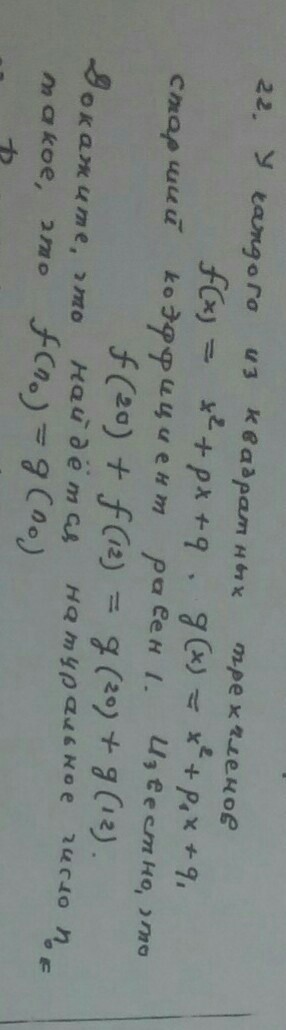 22. У каждого из квадратных трехчленов
f(x) = x² + px + q . g(x) = x² + p₁x + q₁
старший коэффициент равен 1. Известно, это
f(20) + f(12) = g(20) + g(12).
Докажите, это найдётся натуральное число n₀
такое, это f(n₀) = g(n₀)